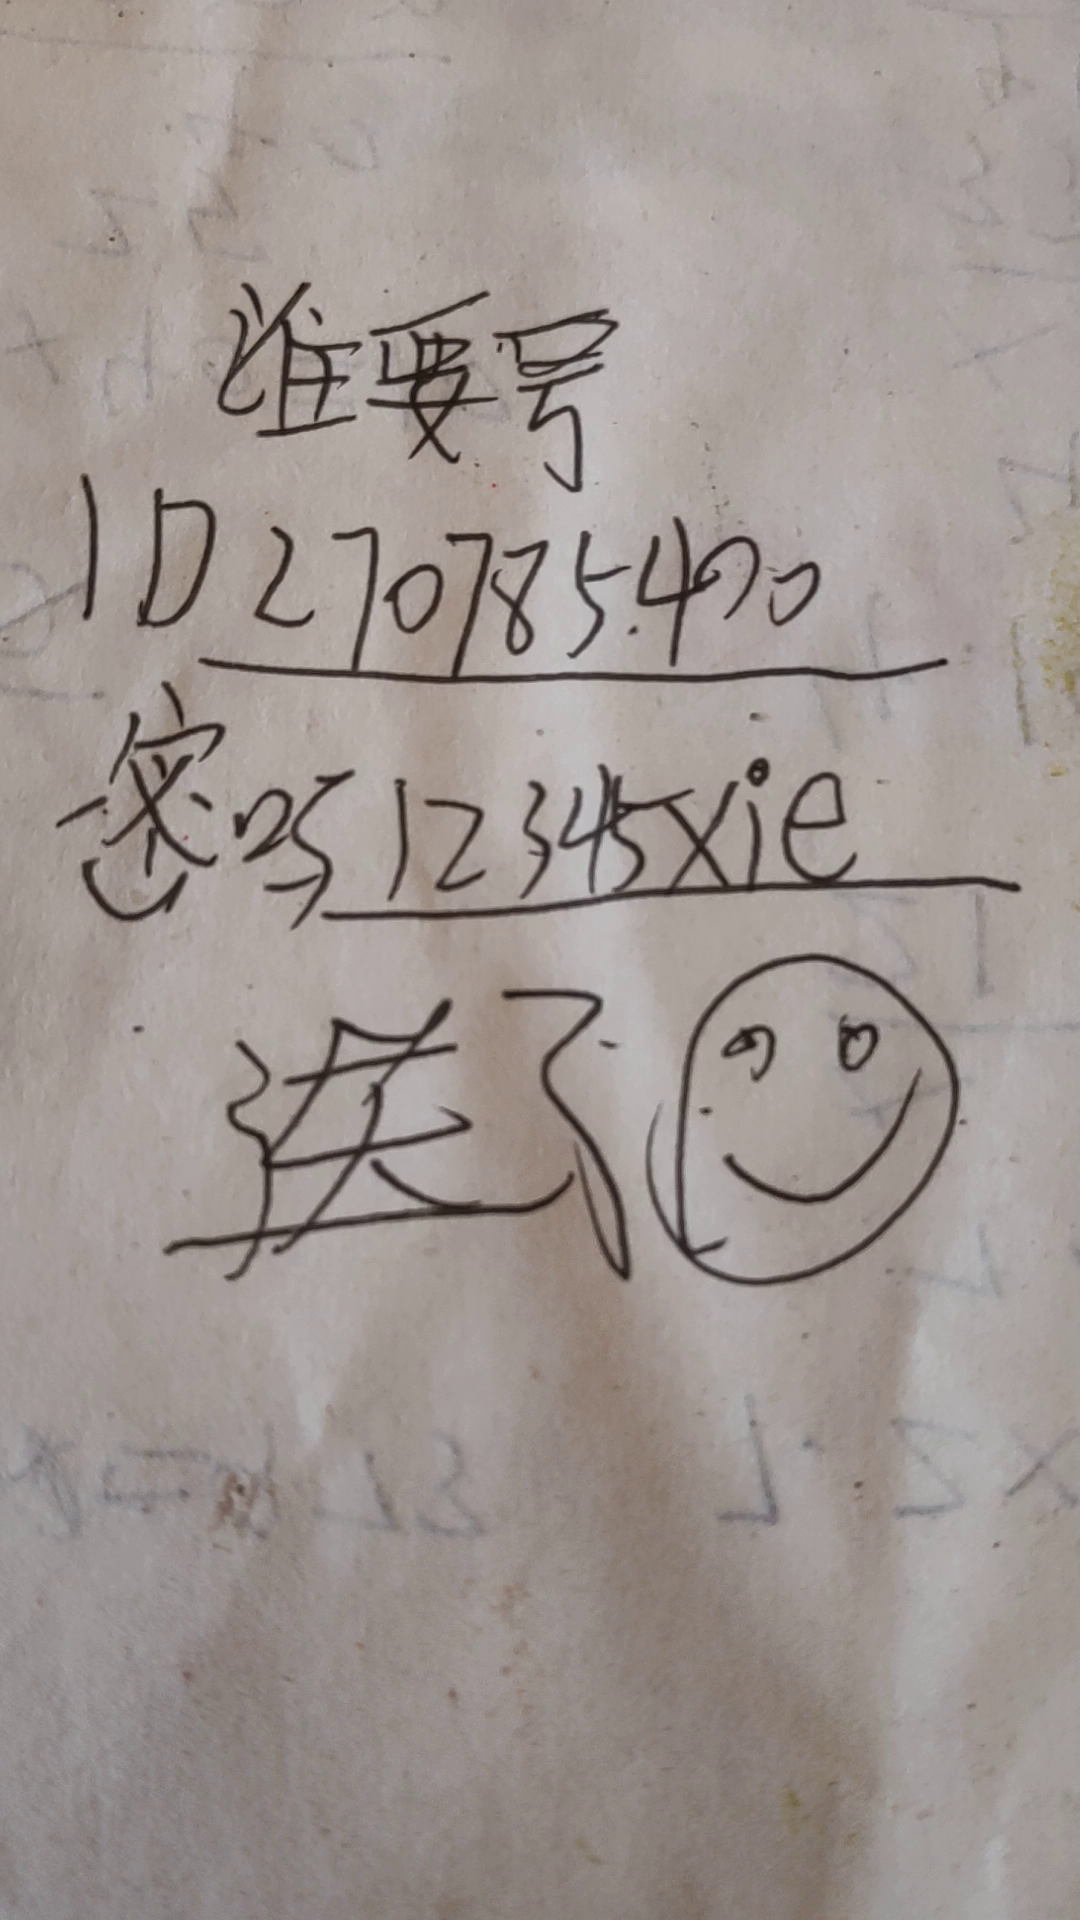 谁要号
ID 270785400
密码 12345xie
送了